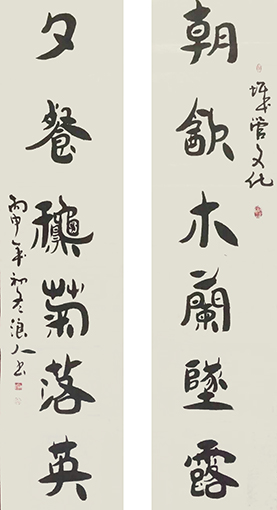 城管文化
朝㱃木蘭墜露
夕餐龝菊落英
丙申年初冬浪人书